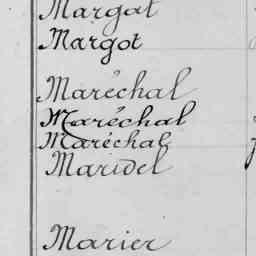 Margat
Margot
Maréchal
Maréchal
Maréchal
Maridel
Marier